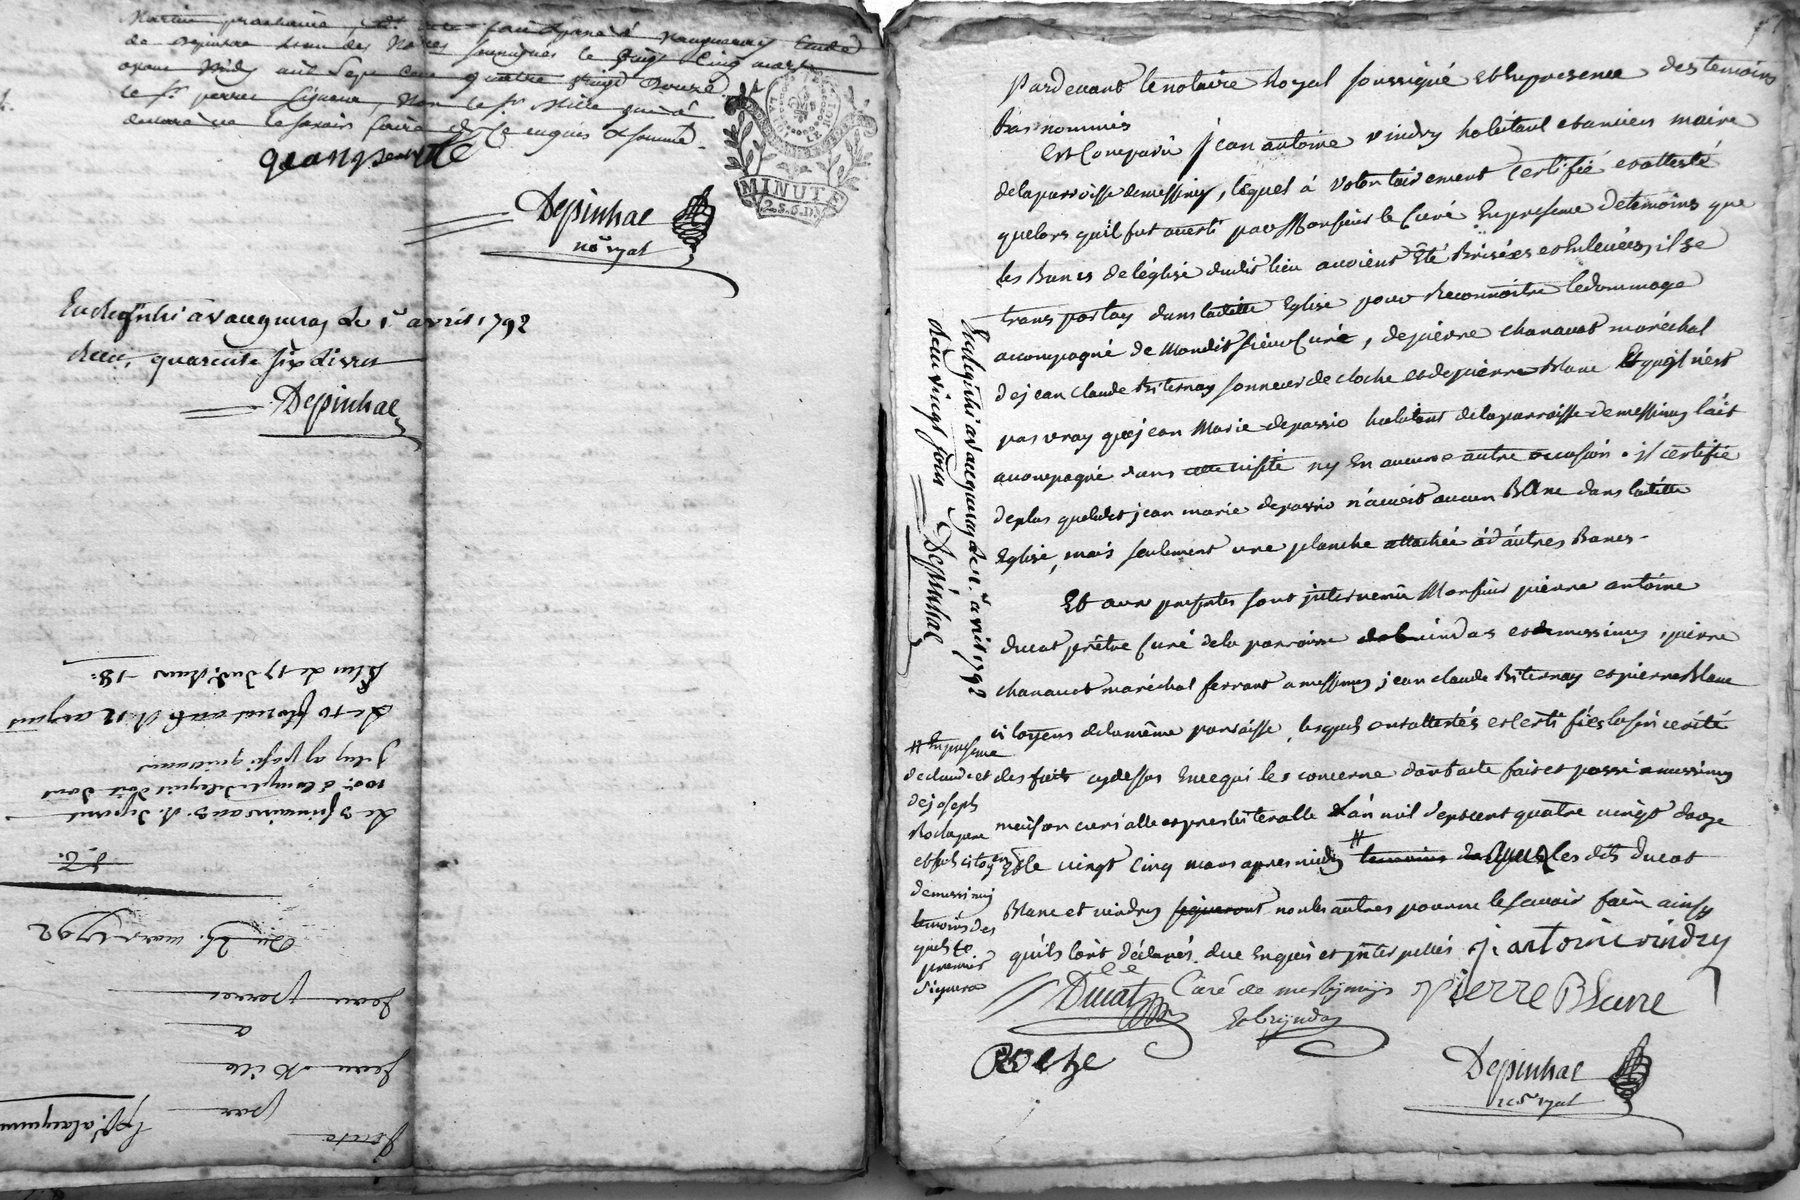 de depinhac l'un des No.res soussignés le vingt Cinq mars
apres Midy mil Sept Cent quatre vingt Douze
le Sr. perret Ligneur, Non le Sr. Mille qui a
declaré ne le savoir faire de Ce enquis & sommé.
MINUT.
2.S.6.D.
Depinhac
nore. ryal
Enregistré à vaugneray le 1er. avril 1792
Recu, quarante six livres
Depinhac
Du 25. mars 1792
Jean perret
a
Jean Mille
par
Vente
Pardevant le notaire Royal soussigné et En presence des temoins
bas nommés
est Comparu jean antoine vindry habitant et ancien maire
de la parroisse de messimy, lequel à volontairement Certifié et attesté
que lors qu'il fut averti par Monsieur le Curé En presence de temoins que
les Bancs de l'église dudit lieu avoient Eté Brisées et Enlevées, il se
transportay dans laditte Eglise pour Reconnoitre le dommage
acompagné de Mondit Sieur Curé, de pierre chanavat maréchal
de jean Claude Biternay sonneur de cloche et de pierre Blanc Et qu'il n'est
pas vray que jean Marie deparrio habitant de la parroisse de messimy l'ait
acompagné dans cette visite ny En aucune autre occasion. il certifie
de plus que ledit jean marie deparrio n'avoit aucun Banc dans laditte
Eglise, mais seulement une planche attachée à d'autres Bancs.
Et aux presentes sont intervenu Monsieur pierre antoine
ducat prêtre Curé de la parroisse de brindas et de messimy, pierre
chanavat maréchal ferrant a messimy jean claude Biternay et pierre Blanc
citoyens de la même parroisse, lesquels ont attestés et certifiés la sincerité
des faits cy dessus En ce qui les concerne dont acte fait et passé a messimy
maison curialle et presbiteralle L'an mil sept cent quatre vingt douze
et le vingt cinq mars apres midy # temoins desquels les dits ducat
Blanc et vindry signeront non les autres pour ne le scavoir faire ainsy
qu'ils l'ont déclarés, due Enquis et interpellés j. antoine vindry
# En presence
de claude et
de joseph
et fils citoyens
de messimy
temoins des
quels le
premier
signera
Enregistré à vaugneray le 1er. avril 1792
Recu vingt sous Depinhac
Ducat Curé de messymyis Pierre Blanc
et brindas
Depinhac
nore. ryal